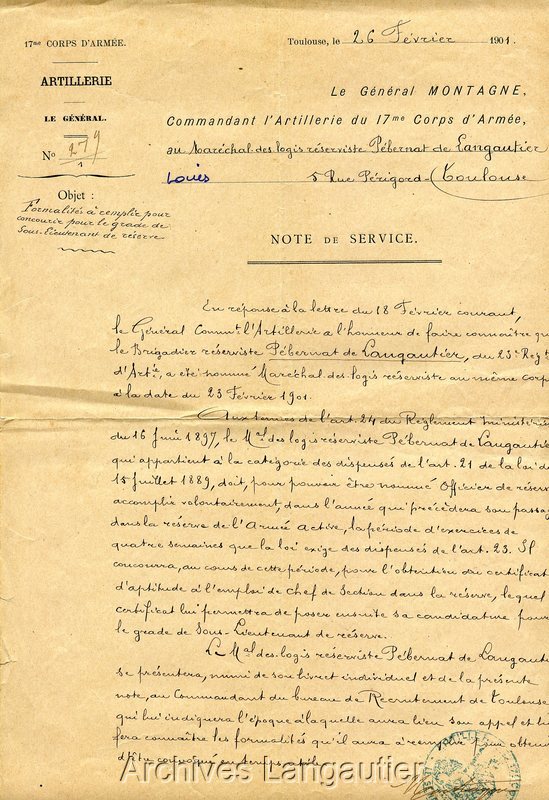 17me CORPS D'ARMÉE.
Toulouse, le 26 Février 1901.
ARTILLERIE
LE GÉNÉRAL.
No 279
1
Le Général MONTAGNE,
Commandant l'Artillerie du 17me Corps d'Armée,
au Maréchal des logis réserviste Pébernat de Langautier
Louis 5 Rue Périgord - Toulouse
Objet :
Formalités à remplir pour
concourir pour le grade de
Sous-Lieutenant de réserve
NOTE DE SERVICE.
En réponse à la lettre du 18 Février courant,
le Général Commt l'Artillerie a l'honneur de faire connaître que
le Brigadier réserviste Pébernat de Langautier, du 23e Regt
d'Artie, a été nommé Maréchal des logis réserviste au même corps
à la date du 23 Février 1901.
Aux termes de l'art. 24 du Règlement ministé
du 16 Juin 1897, le Mal des logis réserviste Pébernat de Langautie
qui appartient à la catégorie des dispensés de l'art. 21 de la loi du
15 Juillet 1889, doit, pour pouvoir être nommé Officier de réserv
accomplir volontairement, dans l'année qui précèdera son passag
dans la réserve de l'Armée active, la période d'exercices de
quatre semaines que la loi exige des dispensés de l'art. 23. Il
concourra, au cours de cette période, pour l'obtention du certificat
d'aptitude à l'emploi de chef de Section dans la réserve, lequel
certificat lui permettra de poser ensuite sa candidature pour
le grade de Sous-Lieutenant de réserve.
Le Mal des logis réserviste Pébernat de Langautie
se présentera, muni de son livret individuel et de la présente
note, au Commandant du bureau de Recrutement de Toulouse
qui lui indiquera l'époque à laquelle aura lieu son appel et lui
fera connaître les formalités qu'il aura à remplir pour obtenir
d'être convoqué en temps utile.
Archives Langautier